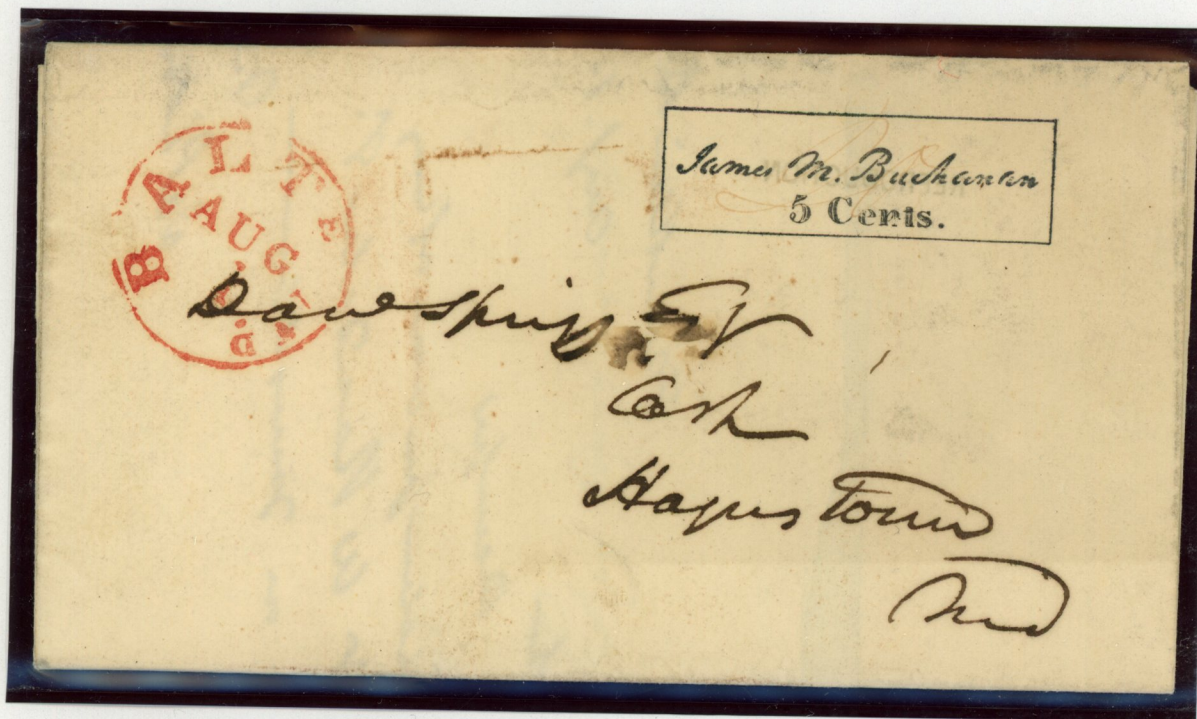 BALTE
AUG
Md
James M. Buchanan
5 Cents.
Dan Sprigg Esq
Cash
Hagers Town
Md